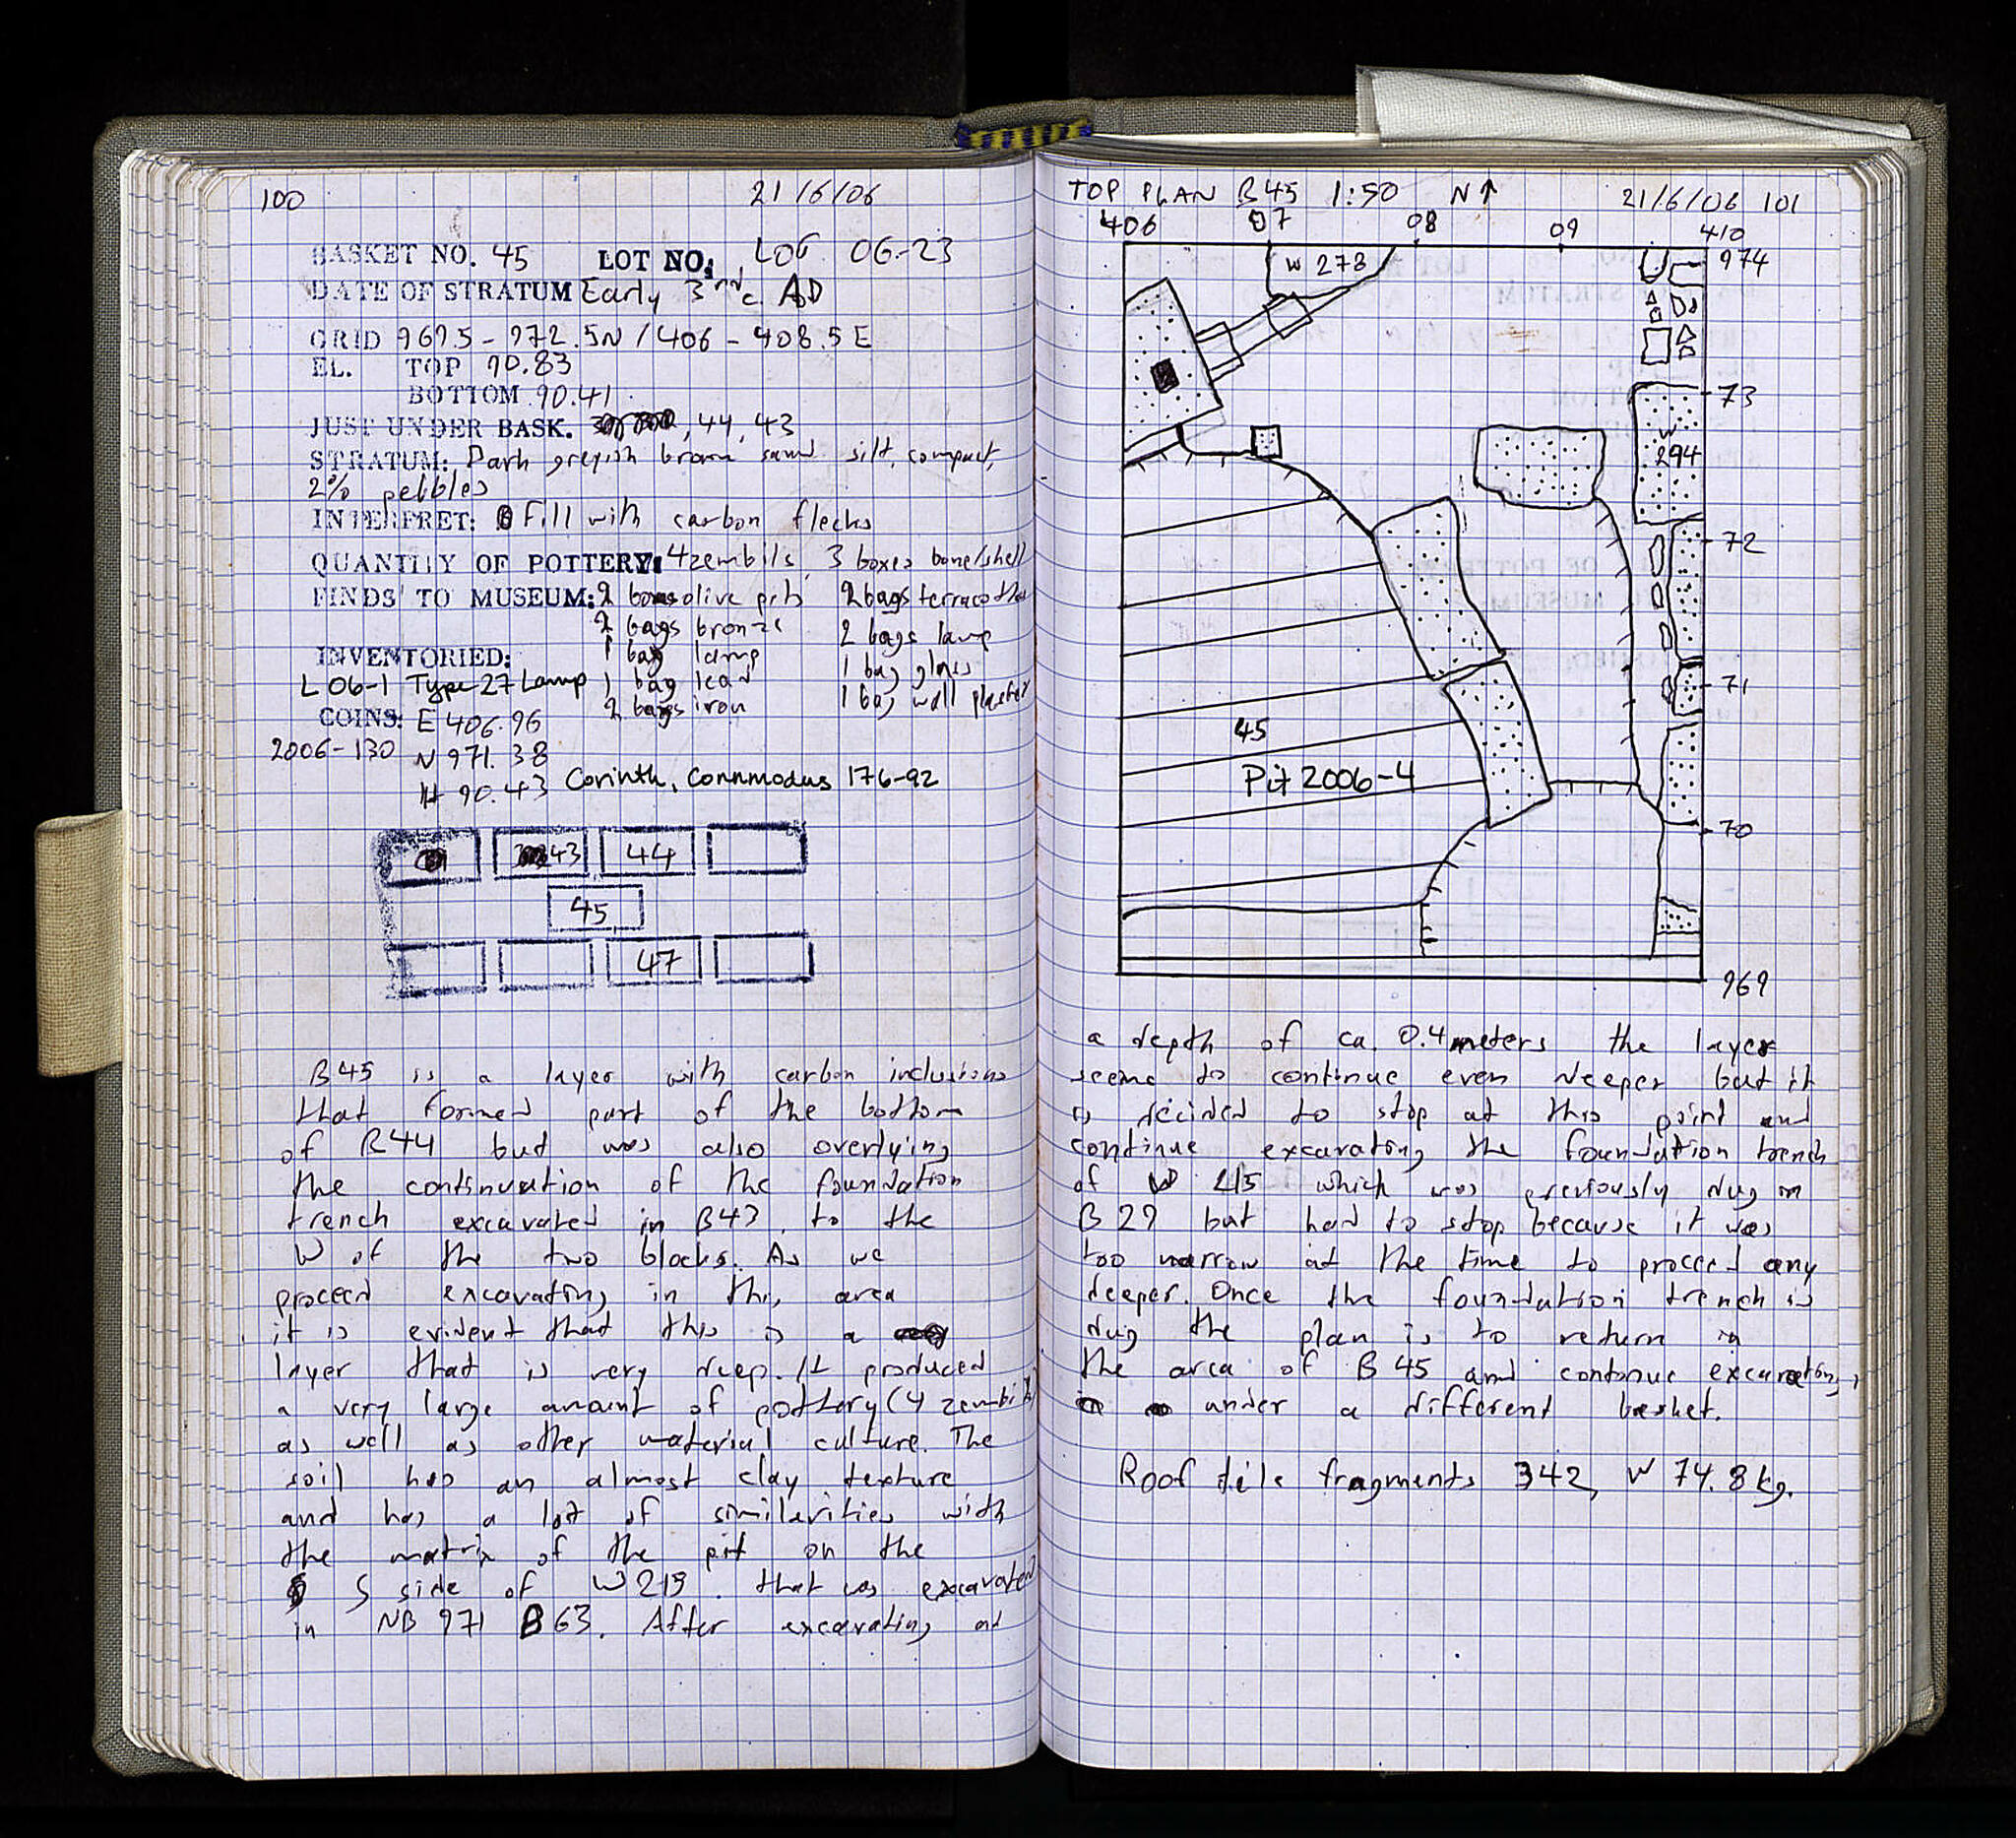 100 21/6/06
BASKET NO. 45 LOT NO. LOT 06-23
DATE OF STRATUM Early 3rd c. AD
GRID 969.5 - 972.5N / 406 - 408.5 E
EL. TOP 90.83
BOTTOM 90.41
JUST UNDER BASK. , 44, 43
STRATUM: Dark greyish brown sand silt, compact,
2% pebbles
INTERPRET: Fill with carbon flecks
QUANTITY OF POTTERY: 4 zembils, 3 boxes bone/shell
FINDS TO MUSEUM: 2 boxes olive pits 2 bags terracotta
2 bags bronze 2 bags lamp
INVENTORIED: 1 bag lamp 1 bag glass
L 06-1 Type 27 Lamp 1 bag lead 1 bag wall plaster
COINS: E 406.96 2 bags iron
2006-130 N 971.38
H 90.43 Corinth, Commodus 176-92
43 44
45
47
B45 is a layer with carbon inclusions
that formed part of the bottom
of B44 but was also overlying
the continuation of the foundation
trench excavated in B43, to the
W of the two blocks. As we
proceed excavating in this area
it is evident that this is a
layer that is very deep. It produced
a very large amount of pottery (4 zembils)
as well as other material culture. The
soil has an almost clay texture
and has a lot of similarities with
the matrix of the pit on the
S side of W219. that was excavated
in NB 971 B63. After excavating at
TOP PLAN B45 1:50 N↑ 21/6/06 101
406 07 08 09 410
W 278 974
73
W
294
72
71
45
Pit 2006-4
70
969
a depth of ca. 0.4 meters the layer
seems to continue even deeper but it
is decided to stop at this point and
continue excavating the foundation trench
of W 215 which was previously dug in
B 29 but had to stop because it was
too narrow at the time to proceed any
deeper. Once the foundation trench is
dug the plan is to return in
the area of B 45 and continue excavating,
under a different basket.
Roof tile fragments 342, W 74.8 kg.